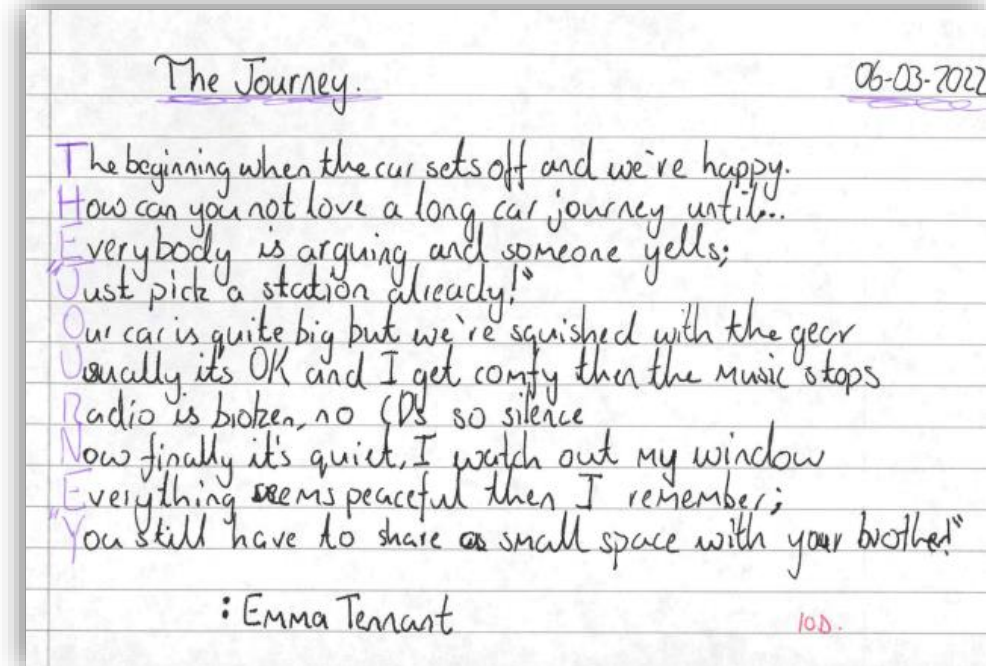 The Journey.
06-03-2022
The beginning when the car sets off and we're happy.
How can you not love a long car journey until...
Everybody is arguing and someone yells;
"Just pick a station already!"
Our car is quite big but we're squished with the gear
Usually it's OK and I get comfy then the music stops
Radio is broken, no CDs so silence
Now finally it's quiet, I watch out my window
Everything seems peaceful then I remember;
"You still have to share a small space with your brother!"
: Emma Tennant
10D.